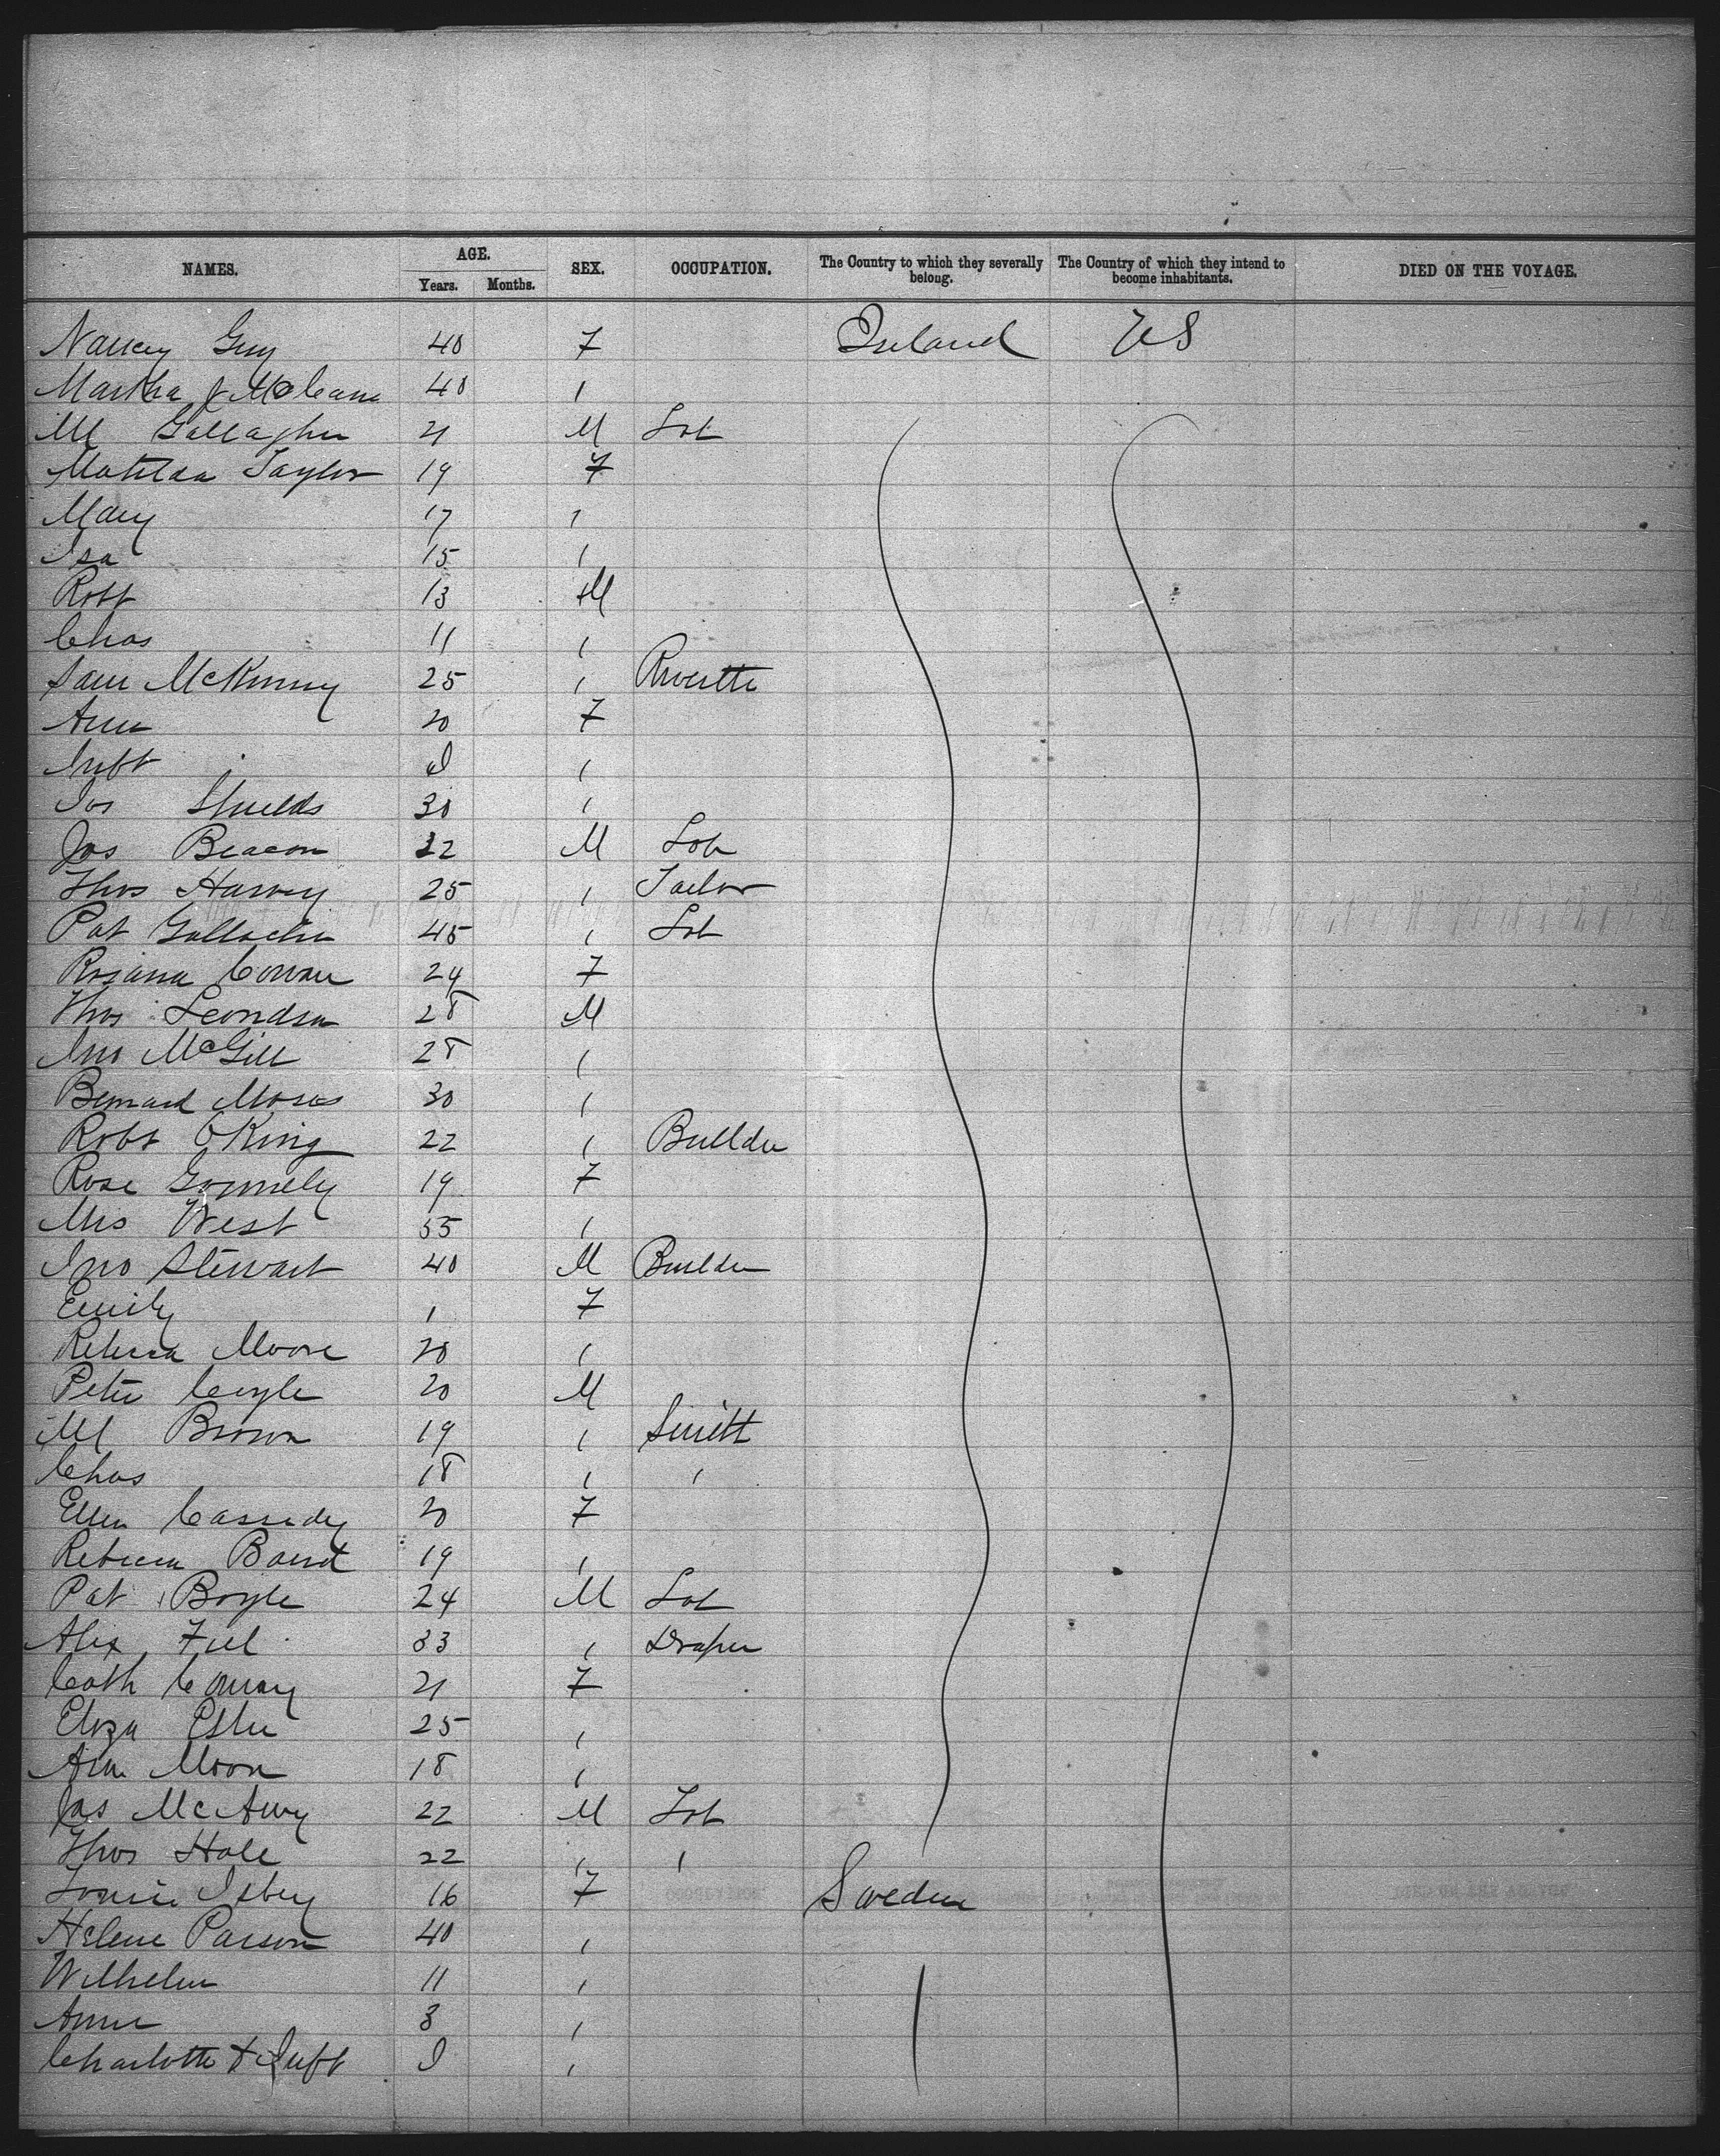 NAMES. AGE. SEX. OCCUPATION. The Country to which they severally belong. The Country of which they intend to become inhabitants. DIED ON THE VOYAGE.
Years. Months.
Nancy Guy 40 F Ireland US
Martha J McLean 40 "
M Gallagher 21 M Lab
Matilda Taylor 19 F
Mary 17 "
Isa 15 "
Robt 13 M
Chas 11 "
Sam McKinney 25 "
Ann 20 F
Inft I "
Jos Shields 30 "
Jas Beacom 22 M Lab
Thos Harvey 25 " Tailor
Pat Gallacher 45 " Lab
Rosana Cowan 24 F
Thos 28 M
Jno McGill 28 "
Bernard Moses 30 "
Robt O King 22 " Builder
Rose Gormely 19 F
Mrs West 55 "
Jno Stewart 40 M Builder
Emily 1 F
Rebecca Moore 20 "
Peter 20 M
M Brown 19 " Smith
Chas 18 " "
Ellen Cassidy 20 F
Rebecca Baird 19 "
Pat Boyle 24 M Lab
Alex 33 " Draper
Cath Conway 21 F
Eliza 25 "
Ann Moon 18 "
Jas 22 M Lab
Thos Hale 22 " "
Louise 16 F Sweden
Helene Parson 40 "
Wilhelm 11 "
Anna 8 "
Charlotte & Inft I "